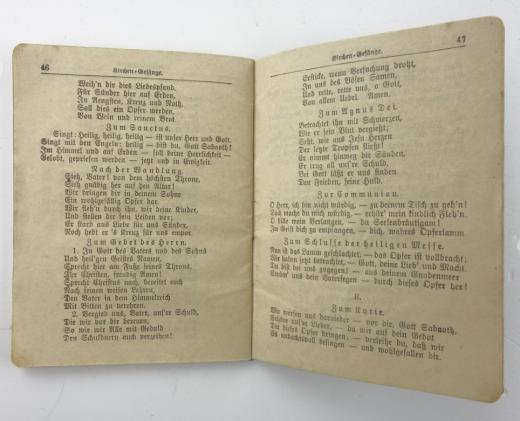 46
Kirchen=Gesänge.
Weih'n dir dies Liebespfand.
Für Sünder hier auf Erden,
In Aengsten, Kreuz und Noth,
Soll dies ein Opfer werden,
Von Wein und reinem Brot.
Zum Sanctus.
Singt: Heilig, heilig, heilig — ist unser Herr und Gott.
Singt mit den Engeln: heilig — bist du, Gott Sabaoth!
Im Himmel und auf Erden — soll deine Herrlichkeit —
Gelobt, gepriesen werden — jetzt und in Ewigkeit.
Nach der Wandlung.
Sieh, Vater! von dem höchsten Throne,
Sieh gnädig her auf den Altar!
Wir bringen dir in deinem Sohne
Ein wohlgefällig Opfer dar.
Wir fleh'n durch ihn, wir deine Kinder,
Und stellen dir sein Leiden vor:
Er starb aus Liebe für uns Sünder,
Noch hebt er's Kreuz für uns empor.
Zum Gebet des Herrn.
1. In des Vaters und des Sohns
Und heil'gen Geistes Namen,
Sprecht hier am Fuße seines Throns,
Ihr Christen, freudig Amen!
Sprechet Christen nach, bereitet auch
Nach seinen weisen Lehren,
Den Vater in dem Himmelreich
Mit Bitten zu verehren.
2. Vergieb uns, Vater, uns're Schuld,
Die wir dir bereuen,
So wie wir Alle mit Geduld
Den Schuldnern auch verzeihen!
Kirchen=Gesänge.
47
Ersticke, wenn Versuchung droht,
In uns des Bösen Samen,
Und rette, rette uns, o Gott,
Von allem Uebel. Amen.
Zum Agnus Dei.
Betrachtet ihn mit Schmerzen,
Wie er sein Blut vergießt;
Seht, wie aus Jesu Herzen
Der letzte Tropfen fließt!
Er nimmt hinweg die Sünden,
Er trug all uns're Schuld.
Bei Gott läßt er uns finden
Den Frieden, seine Huld.
Zur Communion.
O Herr, ich bin nicht würdig, — zu deinem Tisch zu geh'n!
Doch mache du mich würdig, — erhör' mein kindlich Fleh'n.
O stille mein Verlangen, — du Seelenbräutigam!
Im Geist dich zu empfangen, — dich, wahres Opferlamm.
Zum Schlusse der heiligen Messe.
Nun ist das Lamm geschlachtet, — das Opfer ist vollbracht;
Wir haben jetzt betrachtet, — Gott, deine Lieb' und Macht.
Du bist bei uns zugegen! — aus deinem Gnadenmeer
Send' uns dein Vatersegen — durch dieses Opfer her!
Zum Kyrie.
Wir werfen uns darnieder — vor dir, Gott Sabaoth,
Erhöre uns're Lieder, — du mir auf dein Gebot
Die dieses Opfer bringen, — verleihe du, daß wir
Es andachtsvoll besingen — und wohlgefallen dir.